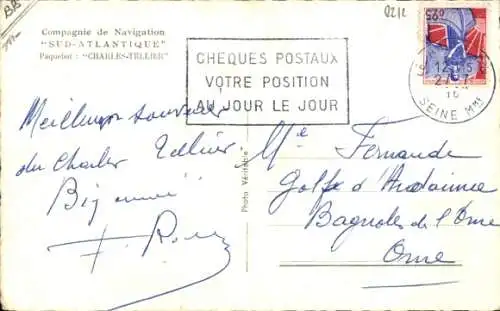 BB
0212
Compagnie de Navigation
"SUD-ATLANTIQUE"
Paquebot : "CHARLES-TELLIER"
CHEQUES POSTAUX
VOTRE POSITION
AU JOUR LE JOUR
0,25
12H15
27-7
SEINE Mme
Meilleurs souvenirs
du Charles Tellier
Photo Véritable
Mlle Fernande
Golfe d'Andaine
Bagnoles de l'Orne
Orne